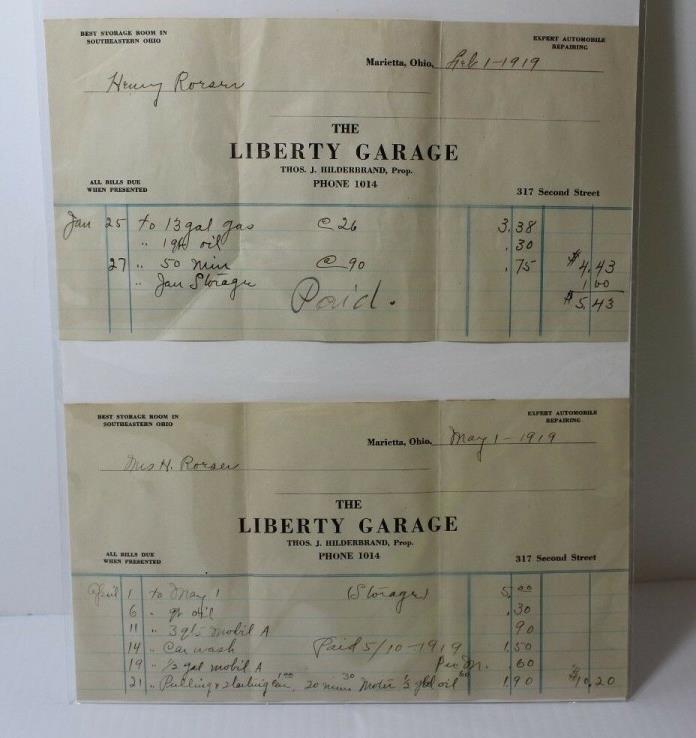 BEST STORAGE ROOM IN
SOUTHEASTERN OHIO
EXPERT AUTOMOBILE
REPAIRING
Marietta, Ohio, Feb 1-1919
Henry Rorser
THE
LIBERTY GARAGE
THOS. J. HILDERBRAND, Prop.
PHONE 1014
ALL BILLS DUE
WHEN PRESENTED
317 Second Street
Jan 25 to 13 gal gas @ 26 3.38
" 1 qt oil .30
27 " 50 min @ 90 .75 $4.43
" Jan Storage 1 00
Paid. $5.43
BEST STORAGE ROOM IN
SOUTHEASTERN OHIO
EXPERT AUTOMOBILE
REPAIRING
Marietta, Ohio, May 1-1919
Mrs H. Rorser
THE
LIBERTY GARAGE
THOS. J. HILDERBRAND, Prop.
PHONE 1014
ALL BILLS DUE
WHEN PRESENTED
317 Second Street
April 1 to May 1 (Storage) 5.00
6 " qt oil .30
11 " 3 qts mobil A 90
14 " Car wash Paid 5/10-1919 1.50
19 " ½ gal mobil A Per M. 60
21 " Pulling & starting car, 1.00 20 mins 30 Motor ½ gal oil 60 1.90 $10.20